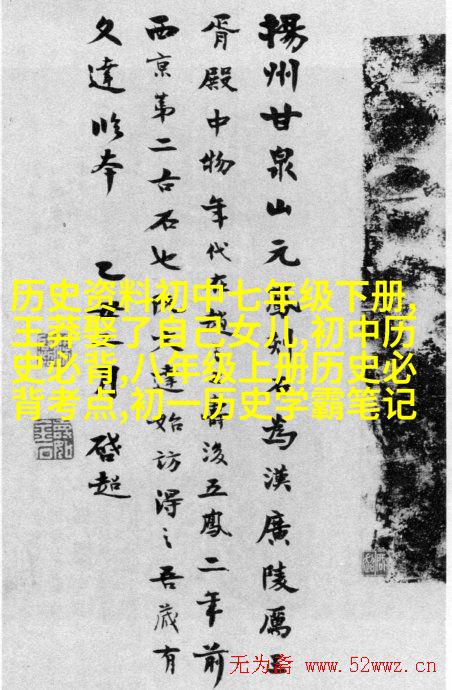 揚州甘泉山元鳳刻石為漢廣陵厲王
胥殿中物年代在後五鳳二年前
西京第二古石也阮文達始訪得之吾藏有
文達臨本 乙丑月 啓超
历史资料初中七年级下册,
王莽娶了自己女儿,初中历
史必背,八年级上册历史必
背考点,初一历史学霸笔记
无为斋 www.52wwz.cn